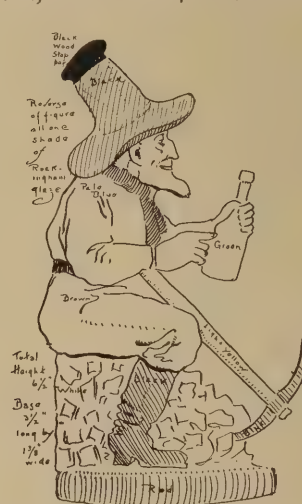 Black
Wood
Stop
per
Black
Reverse
of figure
all one
shade
of
Rock-
ingham
glaze
Pale
Blue
Green
Brown
Yellow
Total
Height
6½"
White
Black
Base
3½"
long by
1⅜"
wide
Red